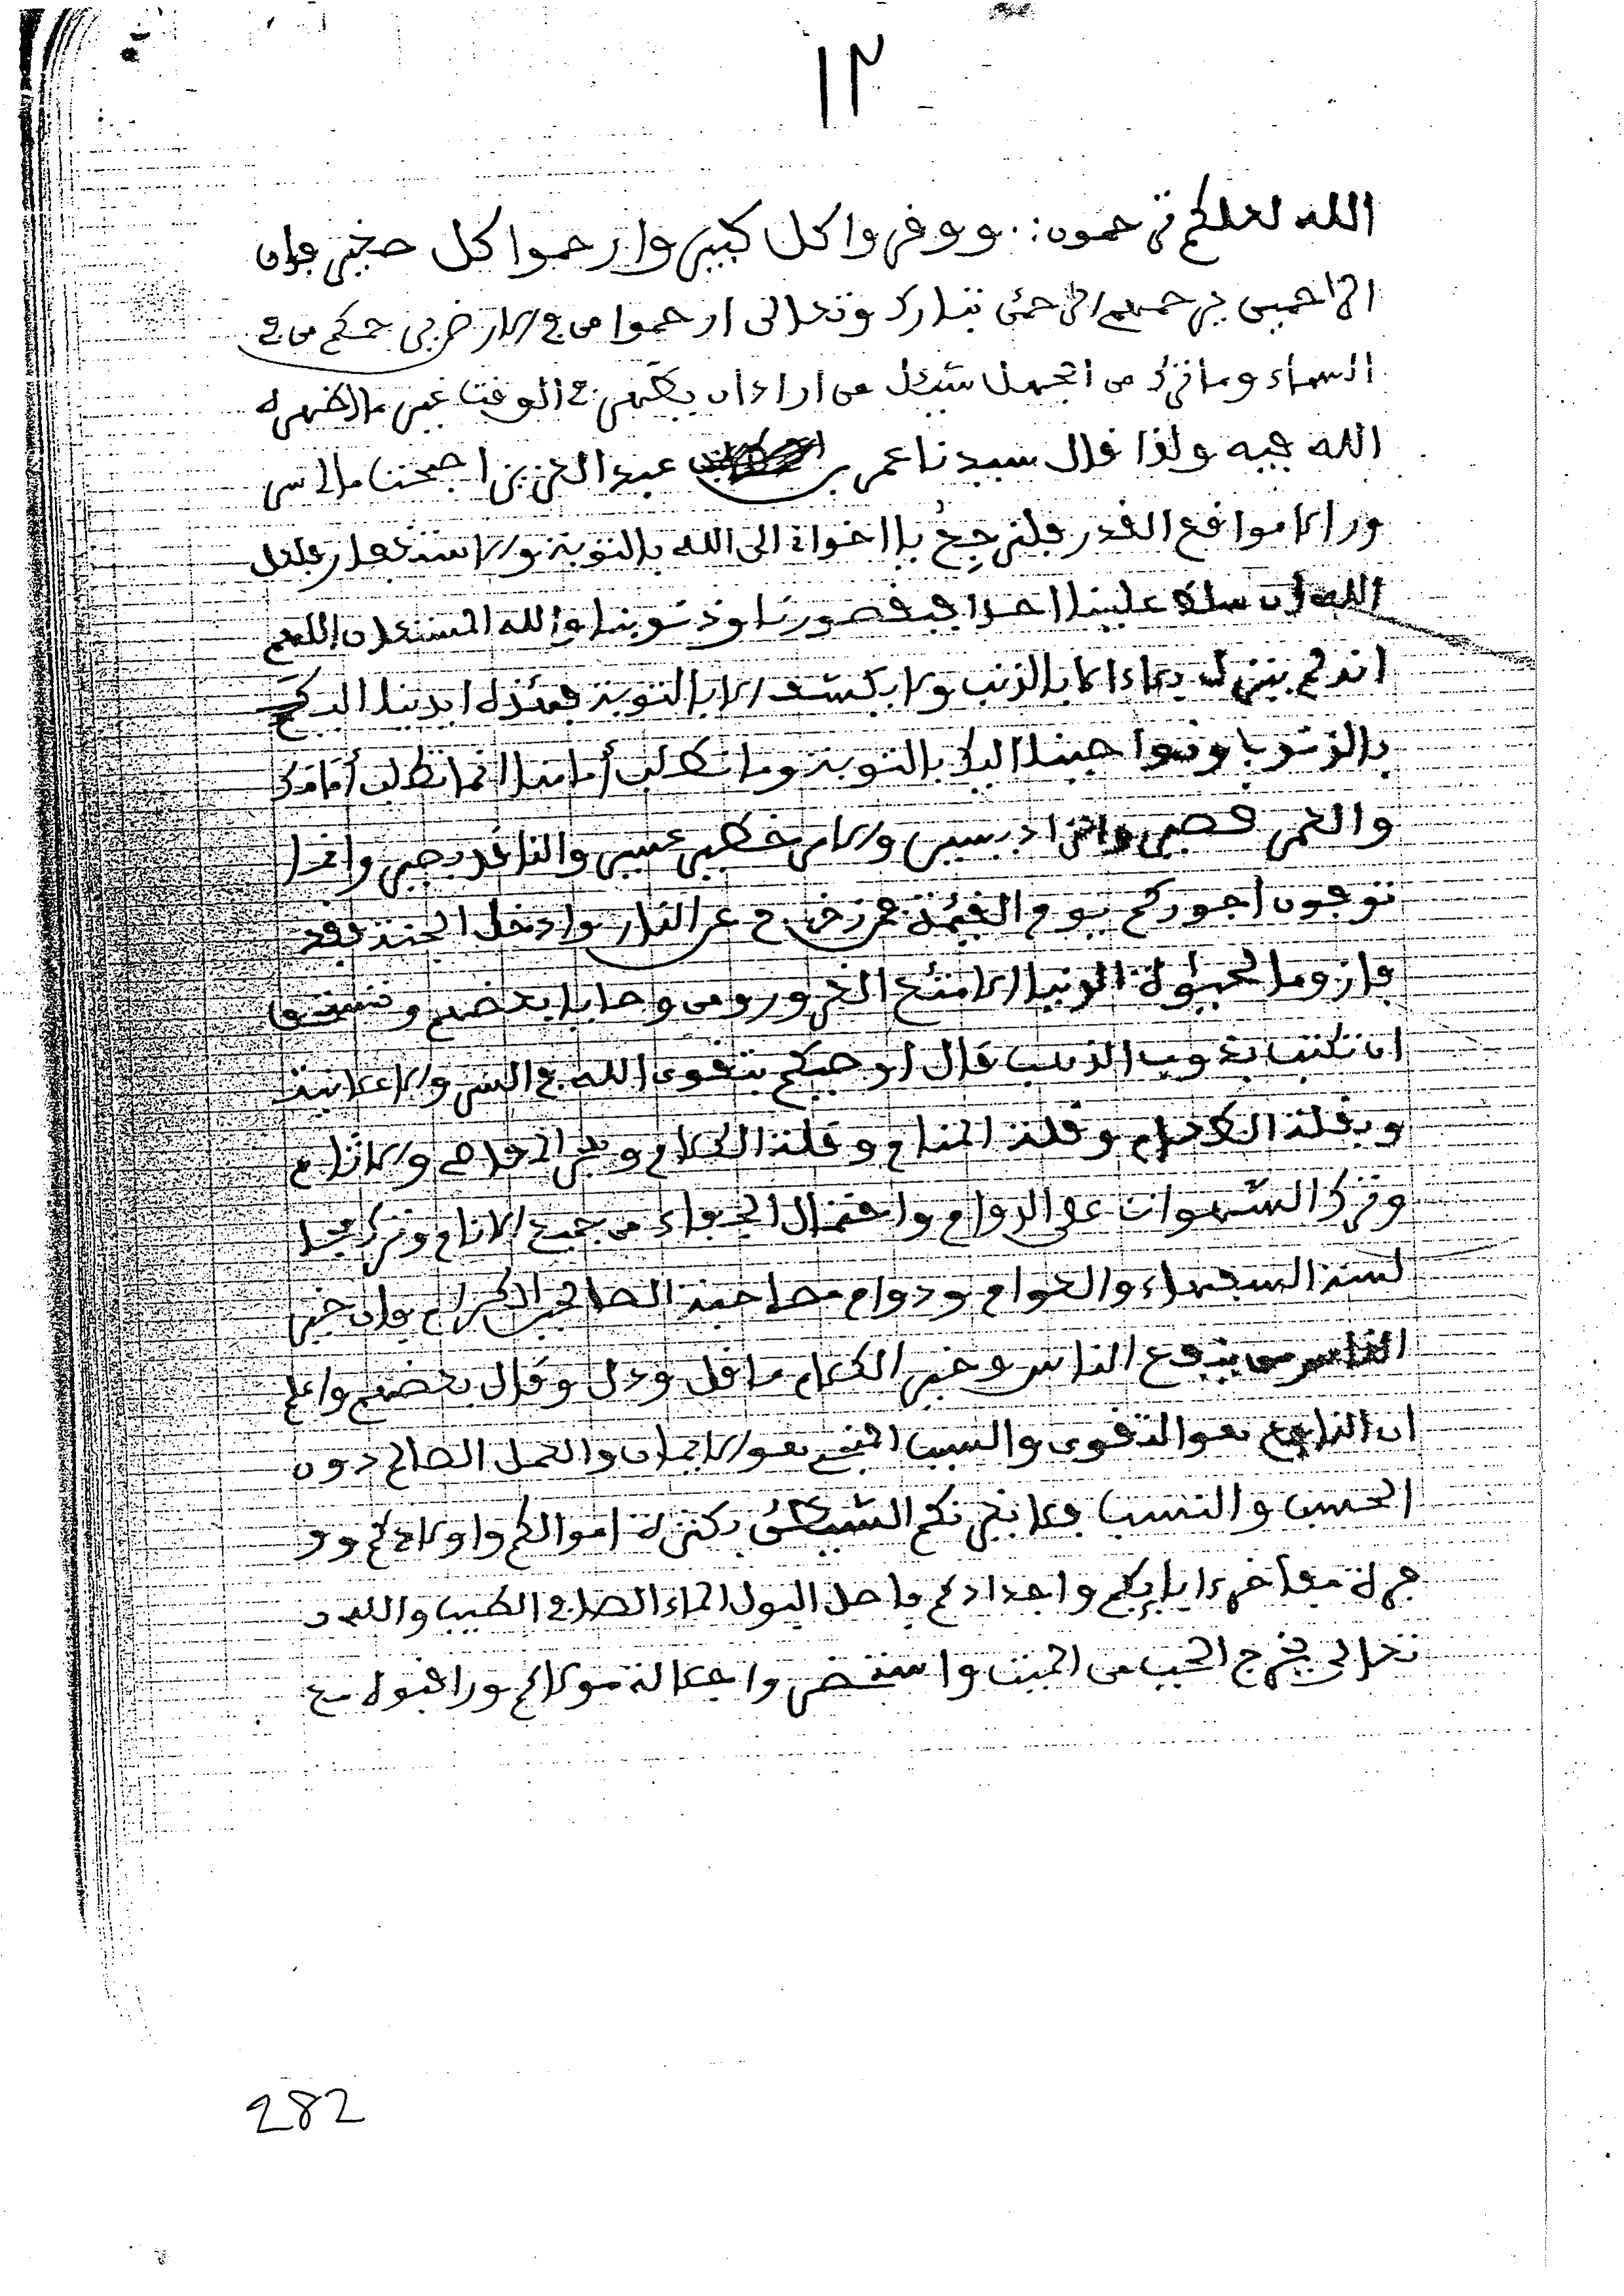 ١٢
الله لعلكم ترحمون ∴ ووقروا كل كبير وارحموا كل صغير فإن
الراحمين يرحمهم الرحمن تبارك وتعالى ارحموا من في الارض يرحمكم من في
السماء وما ترك من الجهل شيئا من اراد ان يظهر في الوقت غير ما اظهره
الله فيه ولذا قال سيدنا عمر بن عبد العزيز اصبحت ما لي سر
ور الا مواقع القدر فلنرجع يا اخوان الى الله بالتوبة والاستغفار فلعل
الله ان سلط علينا احدا فبقصورنا وذنوبنا والله المستعان اللهم
انه لم ينزل بلاء الا بالذنب ولا يكشف الا بالتوبة فهذه ايدينا اليك
بالذنوب ونواصينا اليك بالتوبة وما نطلب أماننا انما نطلب أمانك
والعمر قصير والزاد يسير والامر خطير عسير والناقد بصير وانما
توفون اجوركم يوم القيمة فمن زحزح عن النار وادخل الجنة فقد
فاز وما الحيوة الدنيا الا متع الغرور ومن وصايا بعضهم وتستحق
ان تكتب بذوب الذهب قال اوصيكم بتقوى الله في السر والاعلانية
وبقلة الطعام وقلة المنام وقلة الكلام وهجر المعاصي والاثام
وترك الشهوات على الدوام واحتمال الجفاء من جميع الانام وترك مجا
لسة السفهاء والعوام ودوام مصاحبة الصالحين الكرام فإن خير
الناس من ينفع الناس وخير الكلام ما قل ودل وقال بعضهم واعلم
ان النافع هو التقوى والسبب المنجي هو الايمان والعمل الصالح دون
الحسب والنسب فلا يغرنكم الشيطن بكثرة اموالكم واولادكم وو
فرة مفاخر ءابايكم واجدادكم فاصل البول الماء الصافي الطيب والله
تعالى يخرج الحي من الميت واستحضروا جلالة مولاكم وراقبوه مع
282